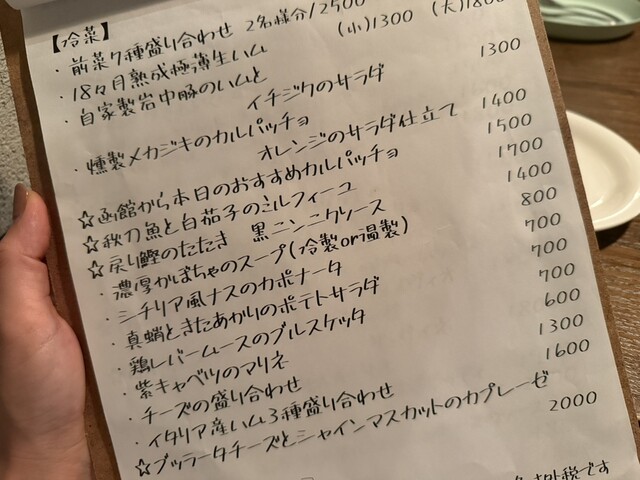 【冷菜】
・前菜7種盛り合わせ 2名様分/2500
・18ヶ月熟成極薄生ハム (小)1300 (大)1800
・自家製岩中豚のハムと
イチジクのサラダ 1300
・燻製メカジキのカルパッチョ
オレンジのサラダ仕立て 1400
☆函館から本日のおすすめカルパッチョ 1500
☆秋刀魚と白茄子のミルフィーユ 1700
☆戻り鰹のたたき 黒ニンニクソース 1400
・濃厚かぼちゃのスープ(冷製or温製) 800
・シチリア風ナスのカポナータ 700
・真蛸ときたあかりのポテトサラダ 700
・鶏レバームースのブルスケッタ 700
・紫キャベツのマリネ 600
・チーズの盛り合わせ 1300
・イタリア産ハム3種盛り合わせ 1600
☆ブッラータチーズとシャインマスカットのカプレーゼ 2000
外税です